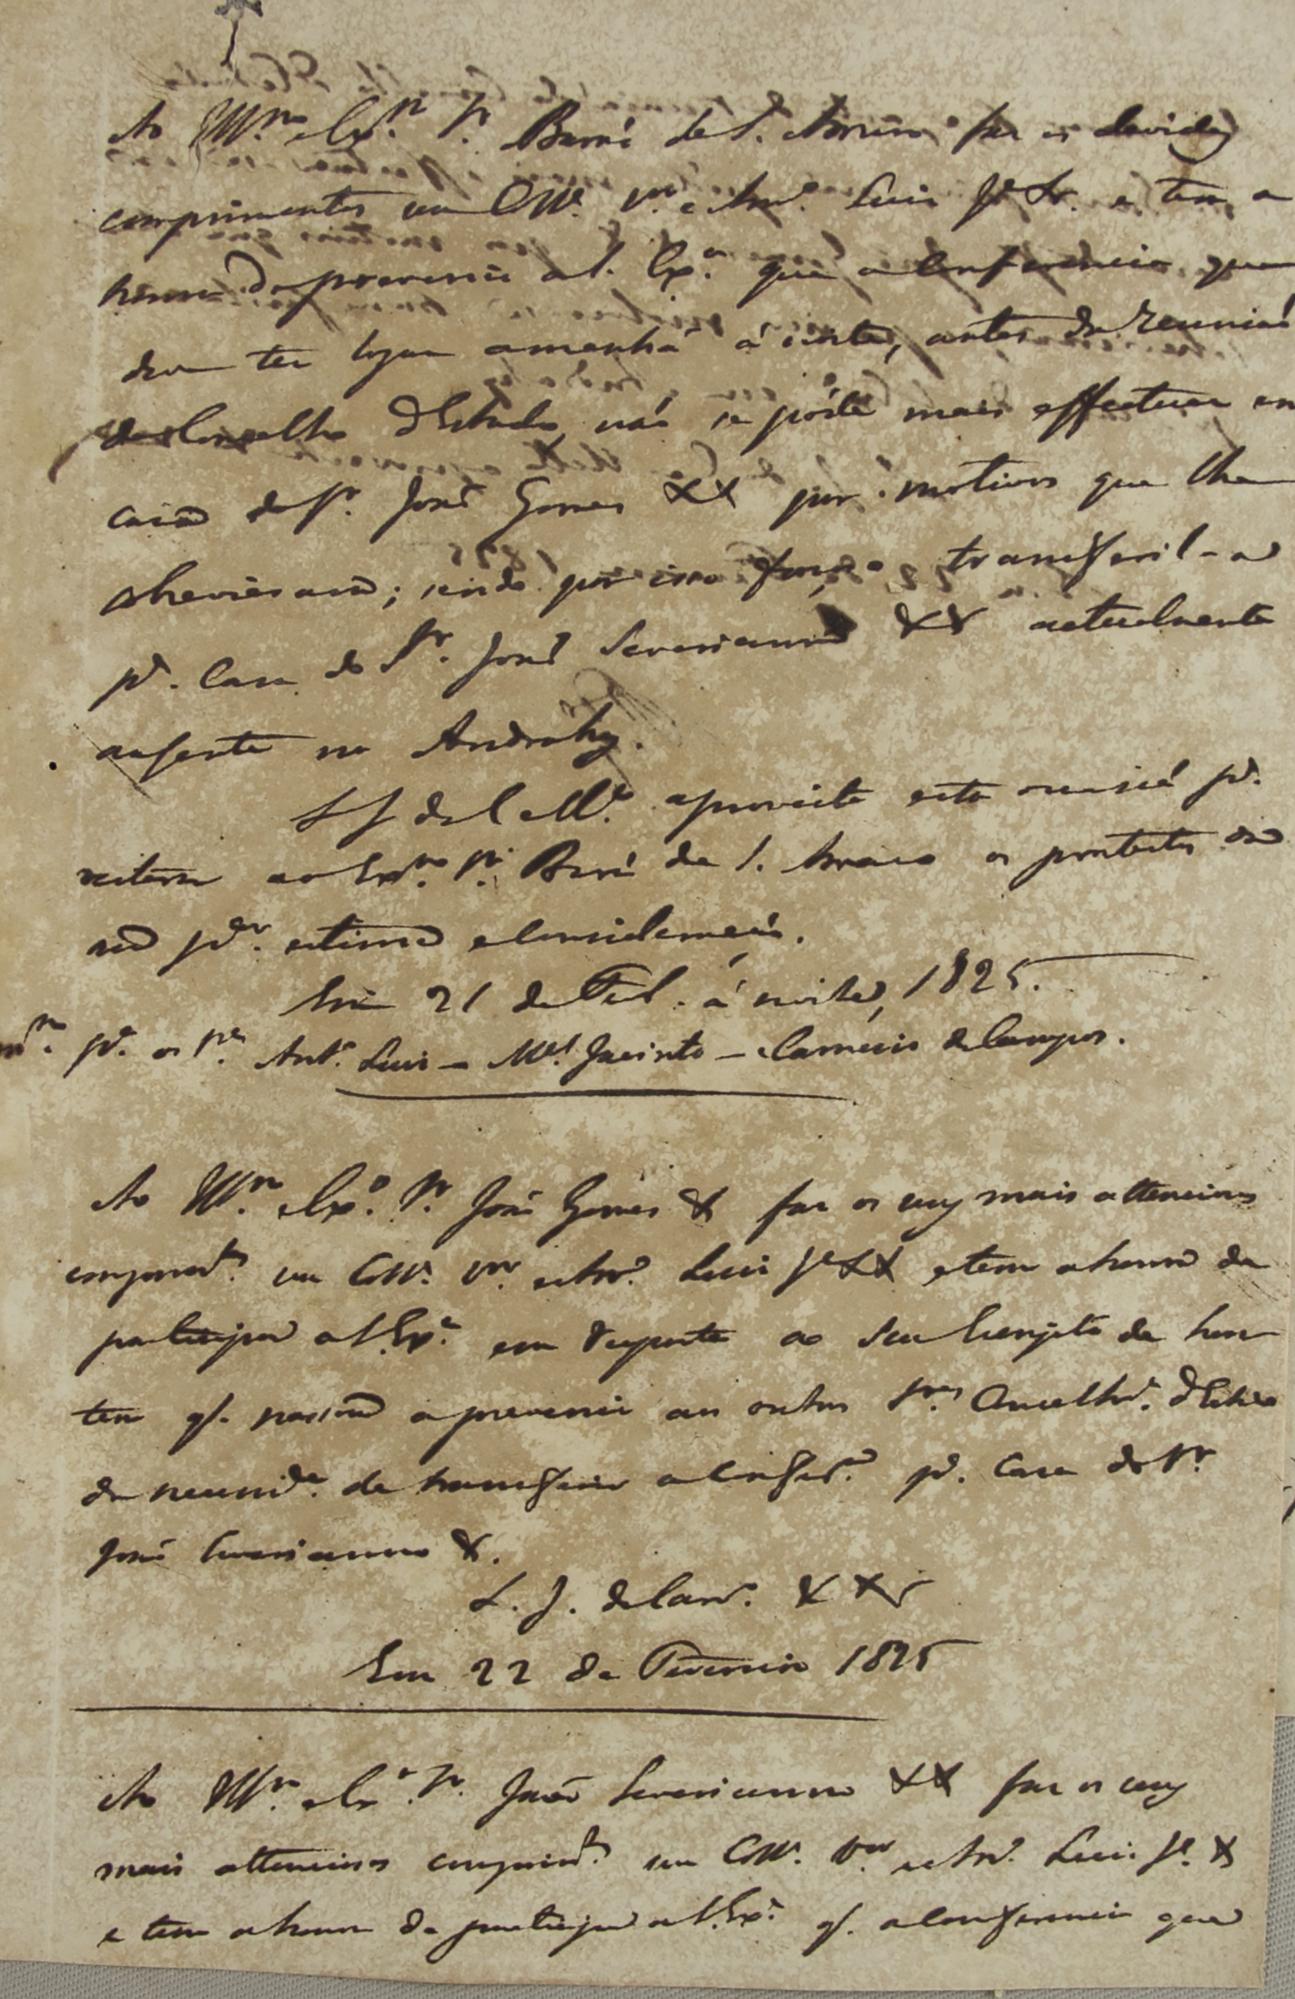 Ao Illmo e Exmo Sr. Barão de S. Amaro faz os devidos
comprimentos seu Coll. Vor e Amo. Luis Je & . e tem a
honra de prevenir a S. Exa. que a Conferencia que
devia ter lugar amanhã á noite, antes da reunião
do Conselho d'Estado, não se póde mais effectuar em
casa do Sr. João Gomes XX por motivos que lhe
sobrevierão; sendo por isso forçoso transferil-a
pa. Casa do Sr. José Severianno XX actualmente
ausente no Andrahy.
L J de C e Mo. aproveita esta occasião pa.
reiterar ao Exmo Sr. Barão de S. Amaro os protestos da
sua par. estima e Consideração.
Em 21 de Fev. á noite, 1825.
pa. os Srs Anto. Luis – Mel Jacinto – Carneiro de Campos.
Ao Illmo e Exo. Sr. João Gomes & faz os seus mais attenciosos
comprimtos. seu Coll. Vor e Amo. Luis Je XX e tem a honra de
participar a S. Exa. em resposta ao seu bilhete de hon
tem q. passou a prevenir aos outros Srs. Conselhos. d'Estado
da necesside. de transferir a Confera. pa. Casa do Sr
José Severianno &.
L. J. de Carvo. XXX
Em 22 de Fevereiro 1825
Ao Illmo e Exo. Sr João Severianno XX faz os seus
mais attenciosos comprimtos. seu Coll. Vor e Amo. Luis Je. X
e tem a honra de participar a S. Exa. q. a Conferencia que